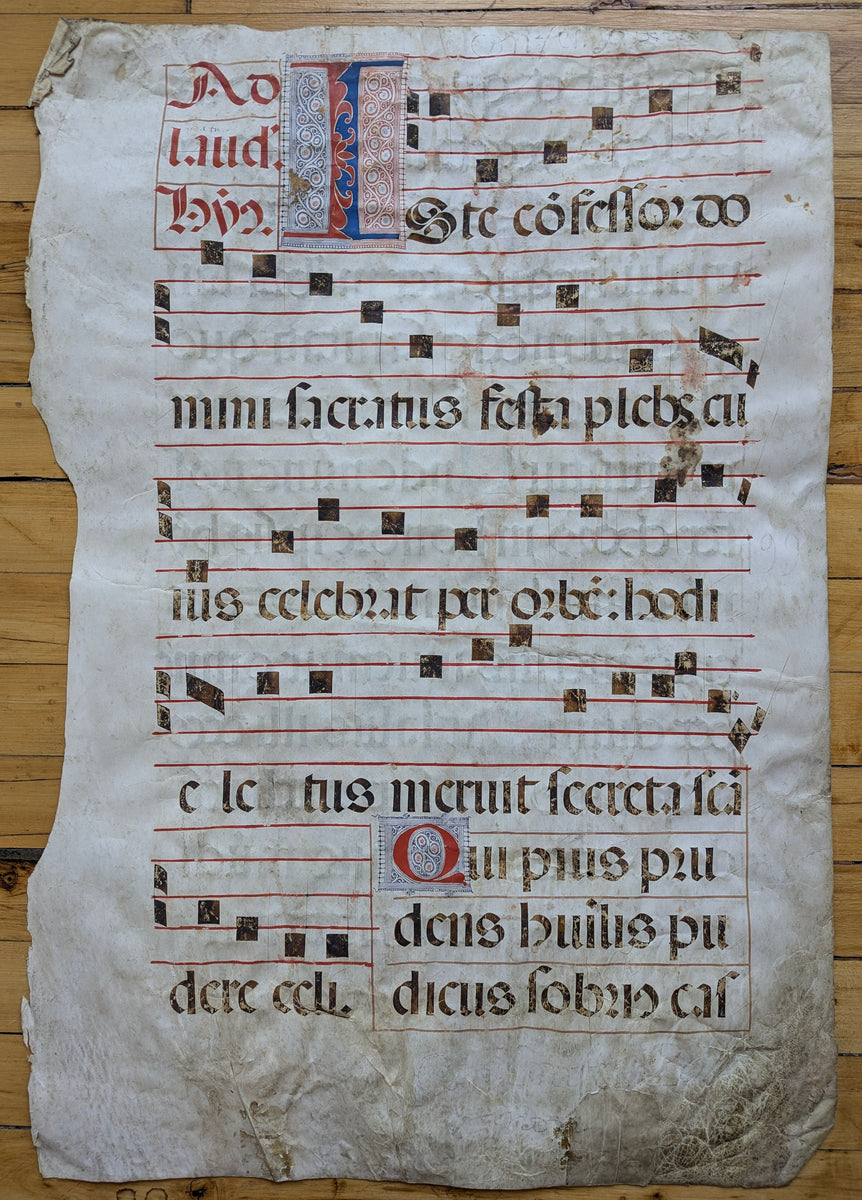 Ad
laud.
hȳn.
Iste cōfessor do
mini sacratus festa plebs cu
ius celebrat per orbē: hodi
e letus meruit secreta scā
dere celi.
Qui pius pru
dens huīlis pu
dicus sobrius cas